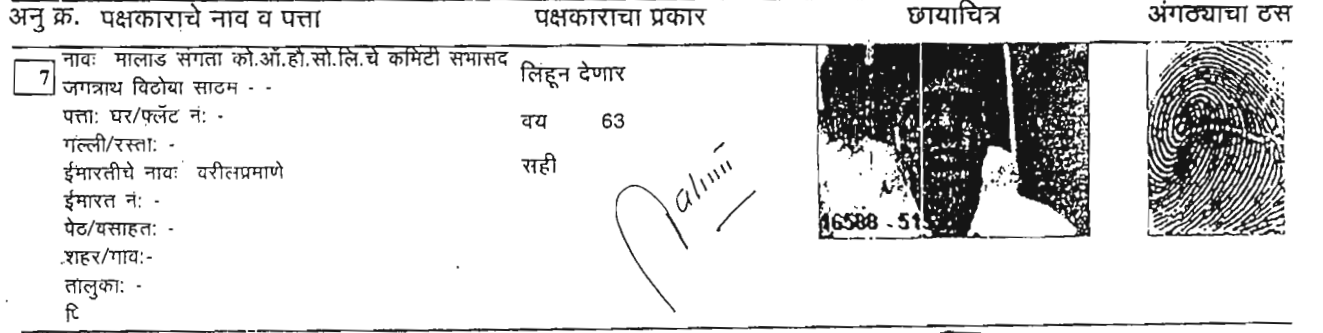 अनु क्र. पक्षकाराचे नाव व पत्ता पक्षकाराचा प्रकार छायाचित्र अंगठ्याचा ठसा
7 नावः मालाड संगता को.ऑ.हौ.सो.लि.चे कमिटी सभासद लिहून देणार
जगन्नाथ विठोबा साटम - -
पत्ताः घर/फ्लॅट नंः - वय 63
गल्ली/रस्ताः -
ईमारतीचे नावः वरीलप्रमाणे सही
ईमारत नंः -
पेठ/वसाहतः -
शहर/गावः-
तालुकाः -
16588 - 51